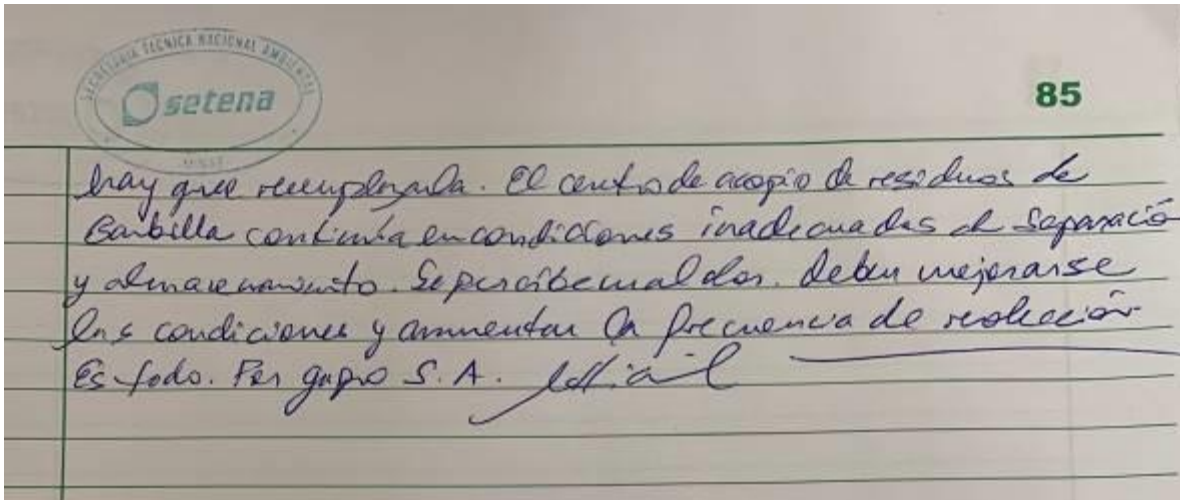 SECRETARIA TECNICA NACIONAL AMBIENTAL
setena
85
hay que reemplazarla. El centro de acopio de residuos de
Barbilla continúa en condiciones inadecuadas de separació
y almacenamiento. Se percibe mal olor. Deben mejorarse
las condiciones y aumentar la frecuencia de recolección
Es todo. Por S. A.